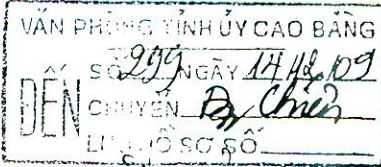 VĂN PHÒNG TỈNH ỦY CAO BẰNG
ĐẾN
SỐ 299 NGÀY 14/12/09
CHUYỂN Đ/c Chiến
LƯU HỒ SƠ SỐ